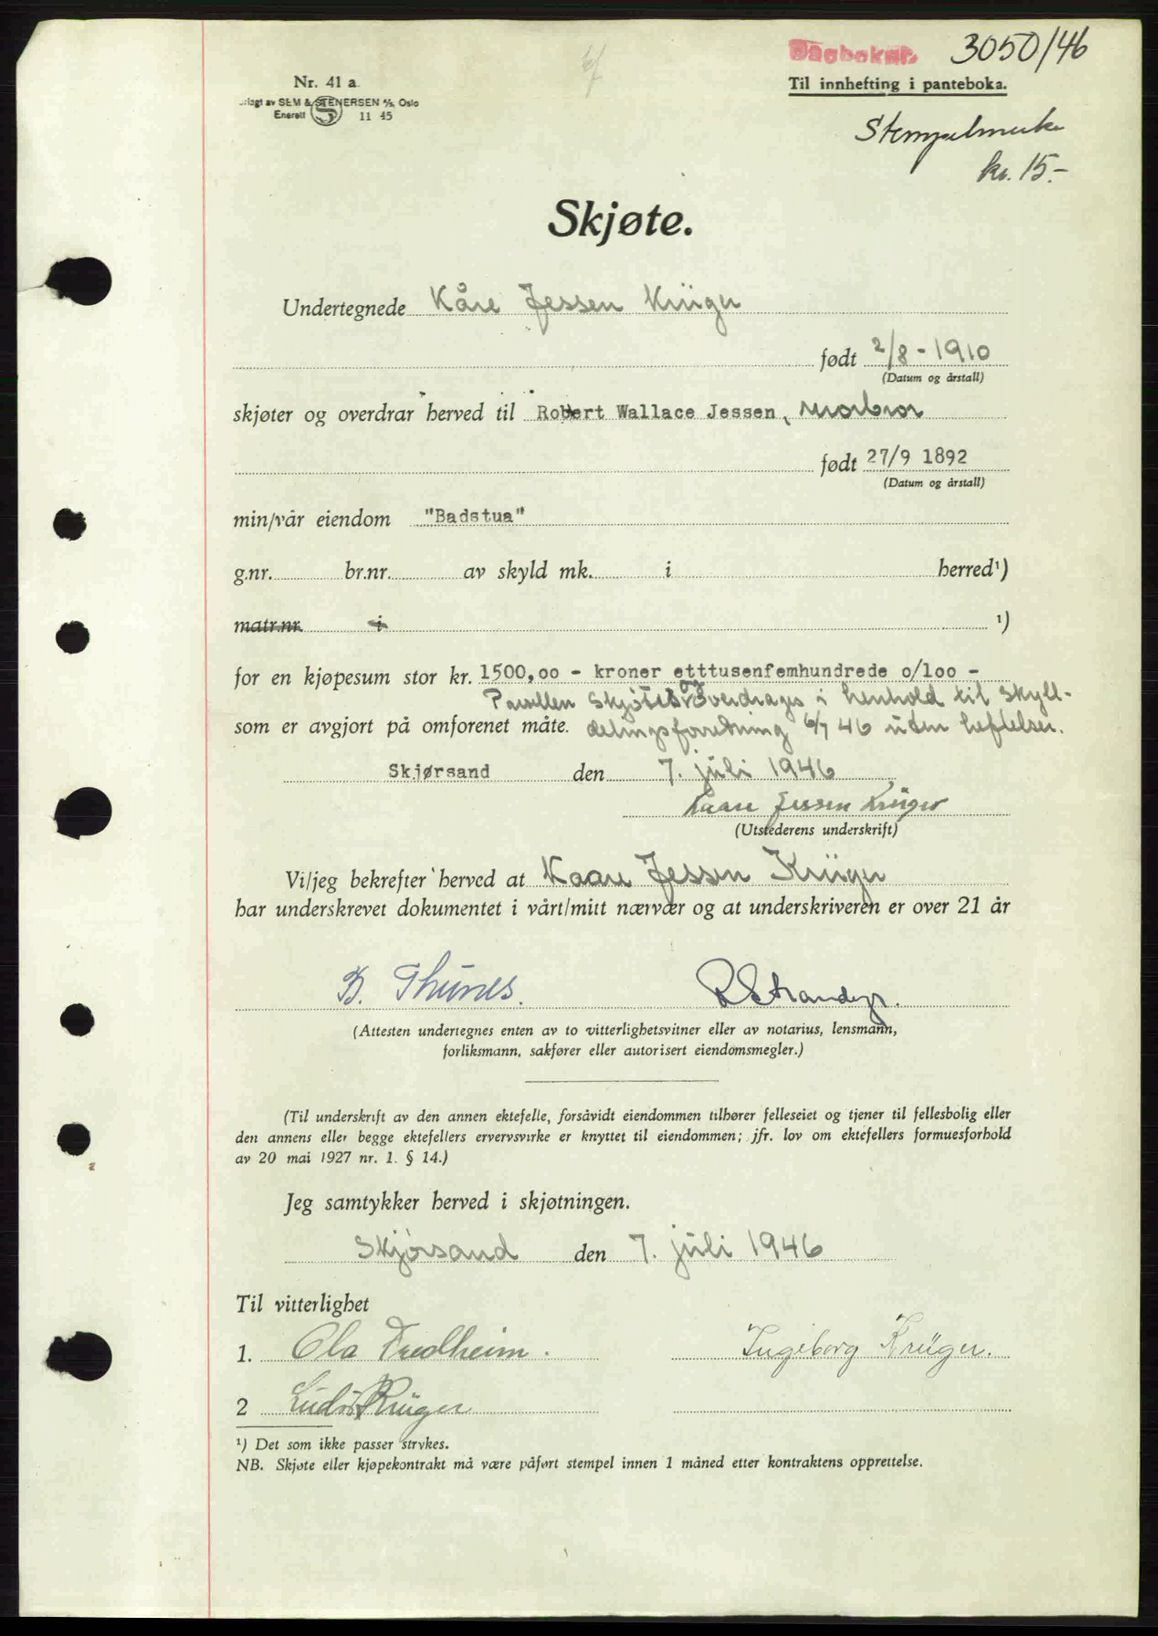 Dagboknr. 3050/46
Nr. 41 a
Til innhefting i panteboka.
SEM & STENERSEN A/S, Oslo
Enerett 11 45
Stempelmerke
kr. 15.-
Skjøte.
Undertegnede Kåre Jessen Krüger
født 2/8 - 1910
(Datum og årstall)
skjøter og overdrar herved til Robert Wallace Jessen, morbror
født 27/9 1892
(Datum og årstall)
min/vår eiendom "Badstua"
g.nr. br.nr. av skyld mk. i herred¹)
matr.nr. i ¹)
for en kjøpesum stor kr. 1500,00 - kroner etttusenfemhundrede 0/100 -
Parsellen skjøtes og overdrages i henhold til skyll-
som er avgjort på omforenet måte. delingsforretning 6/7 46 uten heftelser.
Skjørsand den 7. juli 1946
Kaare Jessen Krüger
(Utstederens underskrift)
Vi/jeg bekrefter herved at Kaare Jessen Krüger
har underskrevet dokumentet i vårt/mitt nærvær og at underskriveren er over 21 år
B. Thunes.
(Attesten undertegnes enten av to vitterlighetsvitner eller av notarius, lensmann,
forliksmann, sakfører eller autorisert eiendomsmegler.)
(Til underskrift av den annen ektefelle, forsåvidt eiendommen tilhører felleseiet og tjener til fellesbolig eller
den annens eller begge ektefellers ervervsvirke er knyttet til eiendommen; jfr. lov om ektefellers formuesforhold
av 20 mai 1927 nr. 1. § 14.)
Jeg samtykker herved i skjøtningen.
Skjørsand den 7. juli 1946
Til vitterlighet
1. Ola Fredheim. Ingeborg Krüger.
2 Krüger
¹) Det som ikke passer strykes.
NB. Skjøte eller kjøpekontrakt må være påført stempel innen 1 måned etter kontraktens opprettelse.